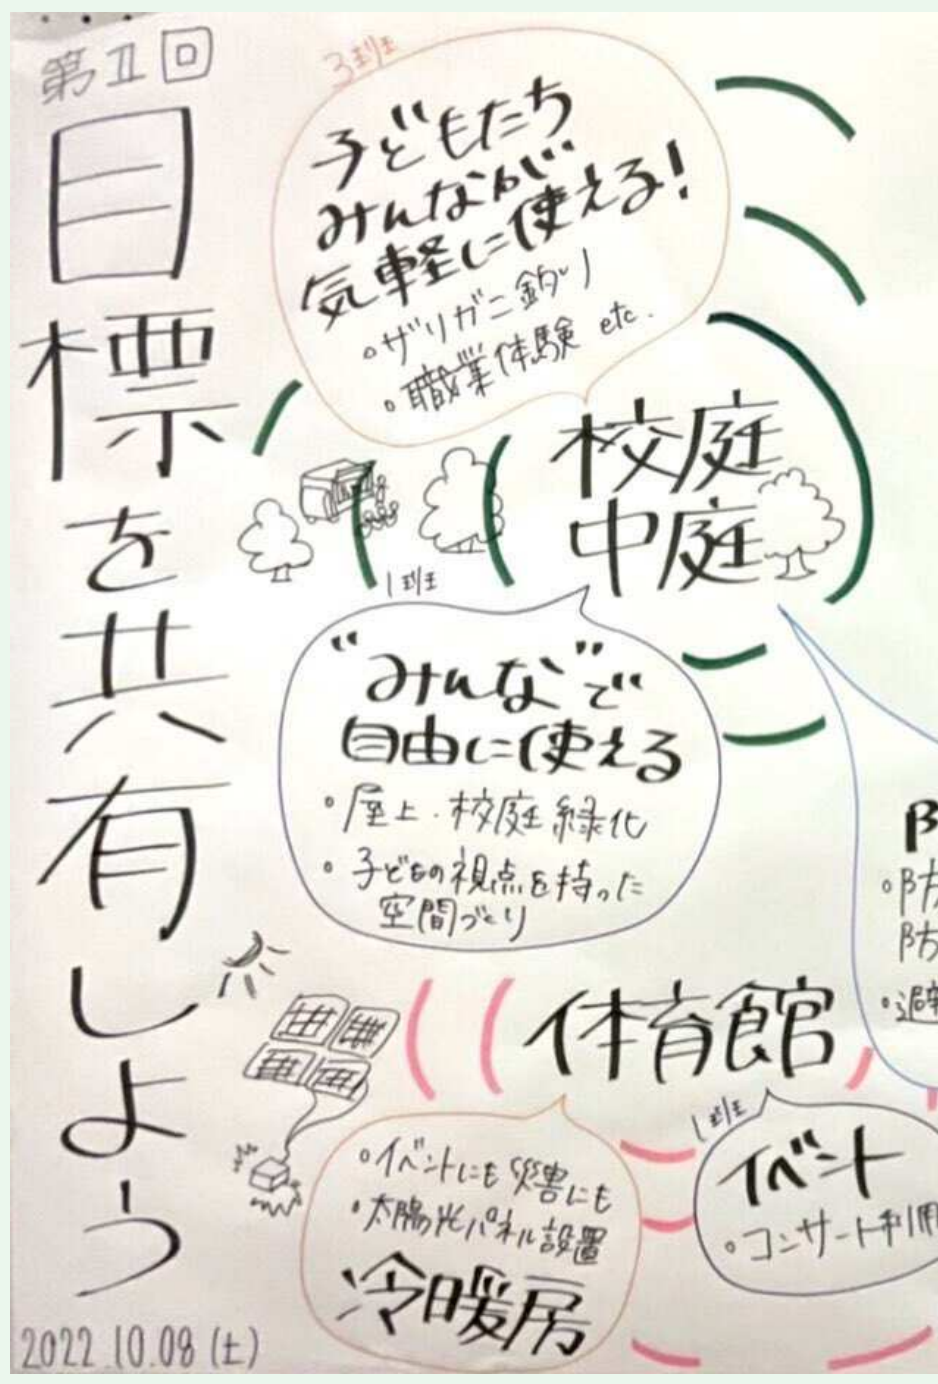 第Ⅱ回
目標を共有しよう
2022.10.08(土)
3班
子どもたち
みんなが
気軽に使える!
。ザリガニ釣り
。職業体験 etc.
校庭
中庭
1班
"みんな"で
自由に使える
。屋上・校庭緑化
。子どもの視点を持った
空間づくり
体育館
・イベントにも災害にも
・太陽光パネル設置
冷暖房
1班
イベント
。コンサート利用
防
防
。避